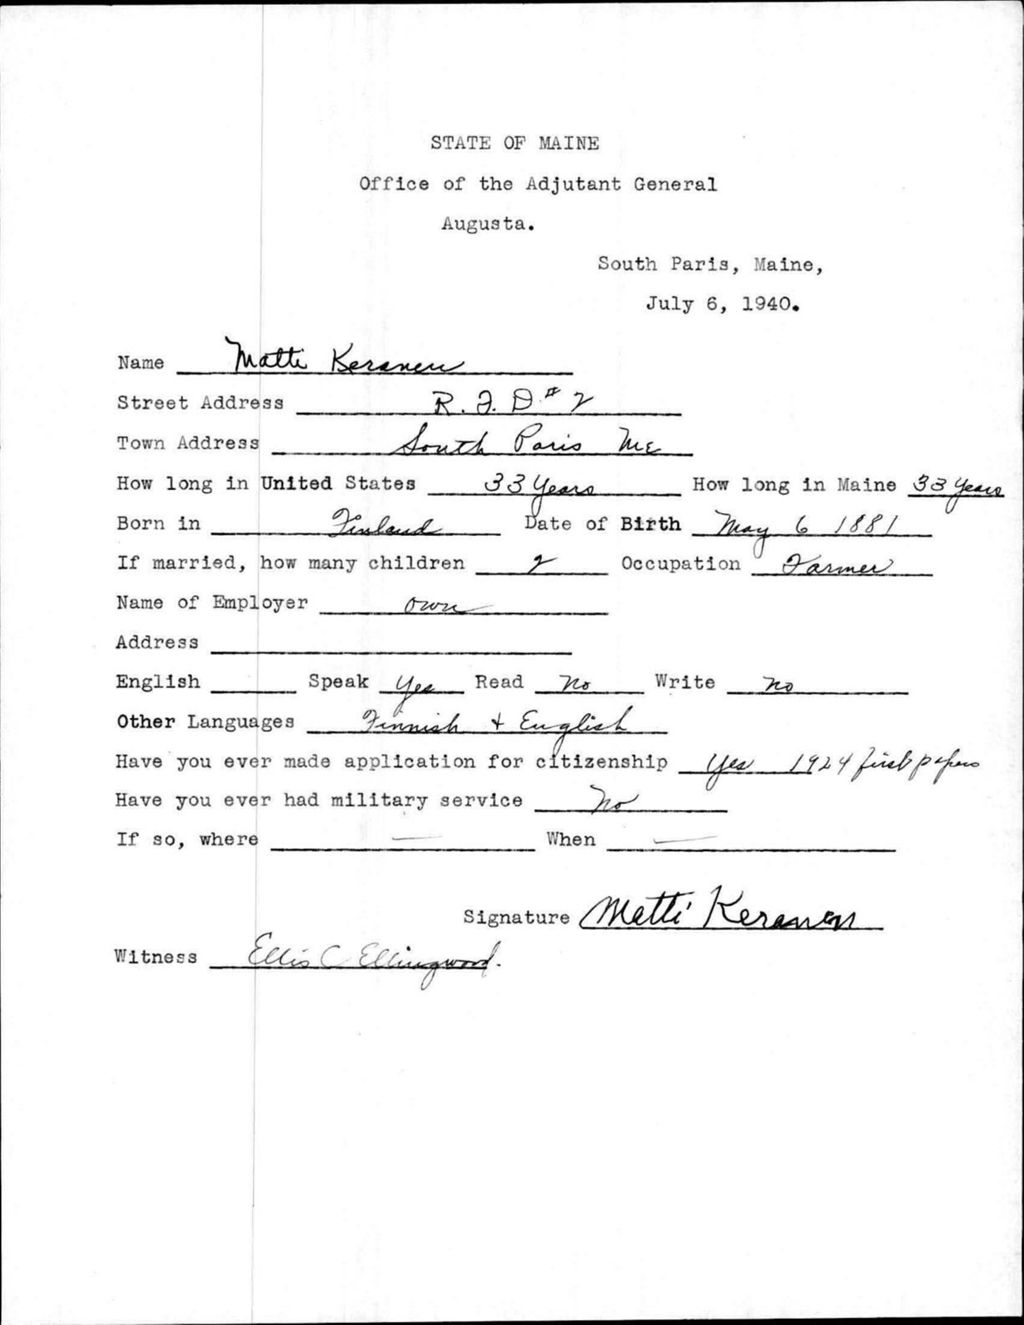 STATE OF MAINE
Office of the Adjutant General
Augusta.
South Paris, Maine,
July 6, 1940.
Name Matti Keranen
Street Address R.F.D.# 2
Town Address South Paris Me
How long in United States 33 Years How long in Maine 33 years
Born in Finland Date of Birth May 6 1881
If married, how many children 2 Occupation Farmer
Name of Employer own
Address
English Speak Yes Read No Write No
Other Languages Finnish + English
Have you ever made application for citizenship Yes 1924 first papers
Have you ever had military service No
If so, where — When —
Signature Matti Keranen
Witness Ellis C Ellingwood.